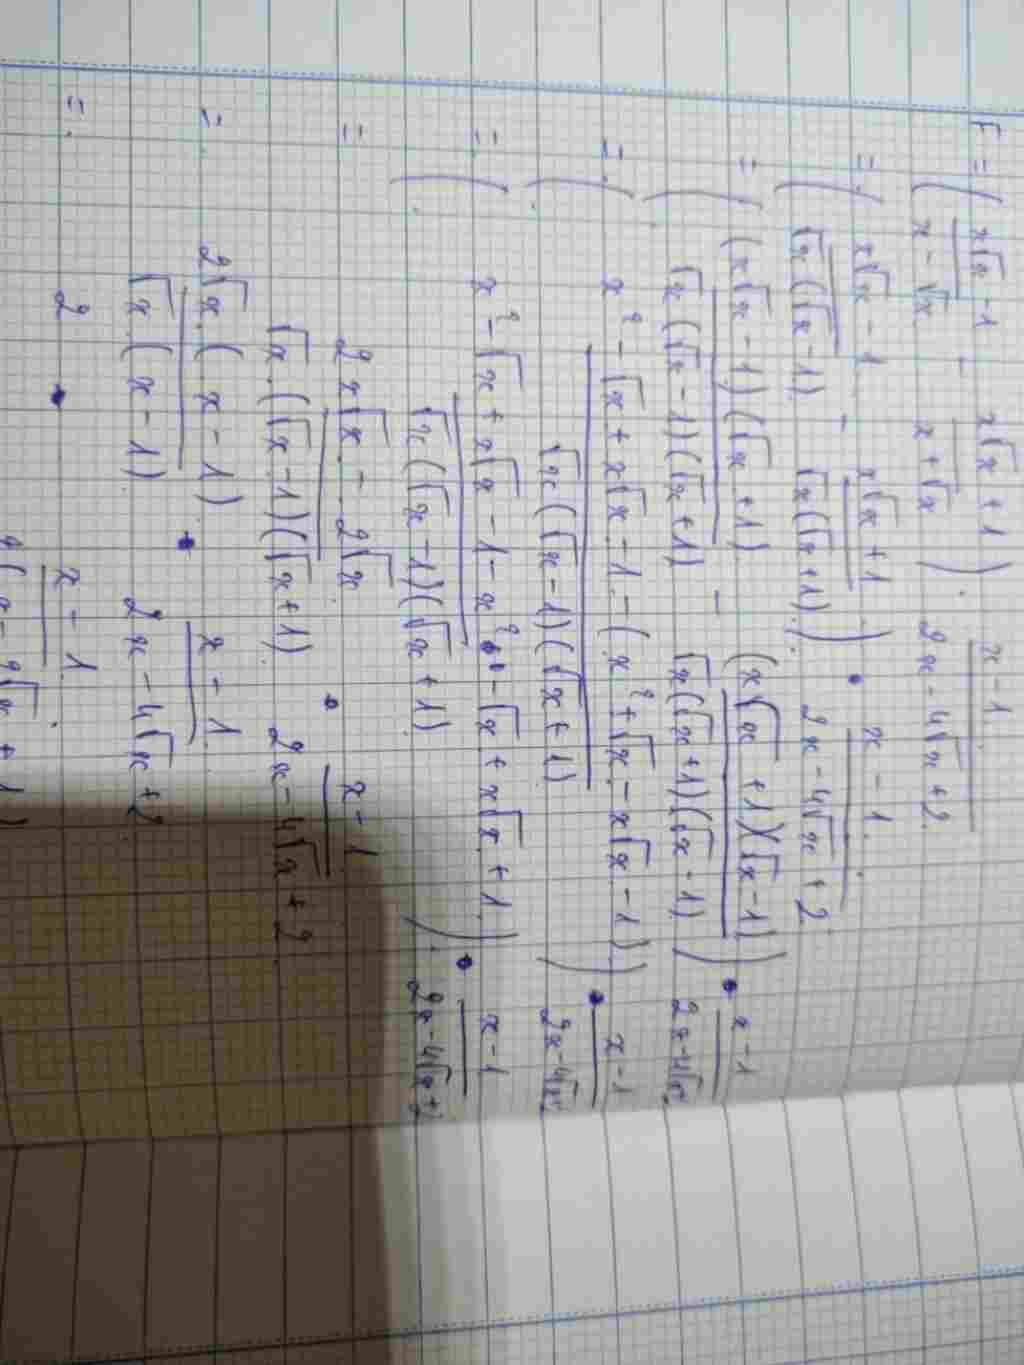 F = ( x√x - 1 / x - √x - x√x + 1 / x + √x ) . x - 1 / 2x - 4√x + 2
= ( x√x - 1 / √x(√x - 1) - x√x + 1 / √x(√x + 1) ) . x - 1 / 2x - 4√x + 2
= ( (x√x - 1)(√x + 1) / √x(√x - 1)(√x + 1) - (x√x + 1)(√x - 1) / √x(√x + 1)(√x - 1) ) . x - 1 / 2x - 4√x
= ( x² - √x + x√x - 1 - (x² + √x - x√x - 1) / √x(√x - 1)(√x + 1) ) . x - 1 / 2x - 4√x
= ( x² - √x + x√x - 1 - x² - √x + x√x + 1 / √x(√x - 1)(√x + 1) ) . x - 1 / 2x - 4√x + 2
= 2x√x - 2√x / √x.(√x - 1)(√x + 1) . x - 1 / 2x - 4√x + 2
= 2√x.(x - 1) / √x.(x - 1) . x - 1 / 2x - 4√x + 2
= 2 . x - 1 / 2(x - 2√x + 1)